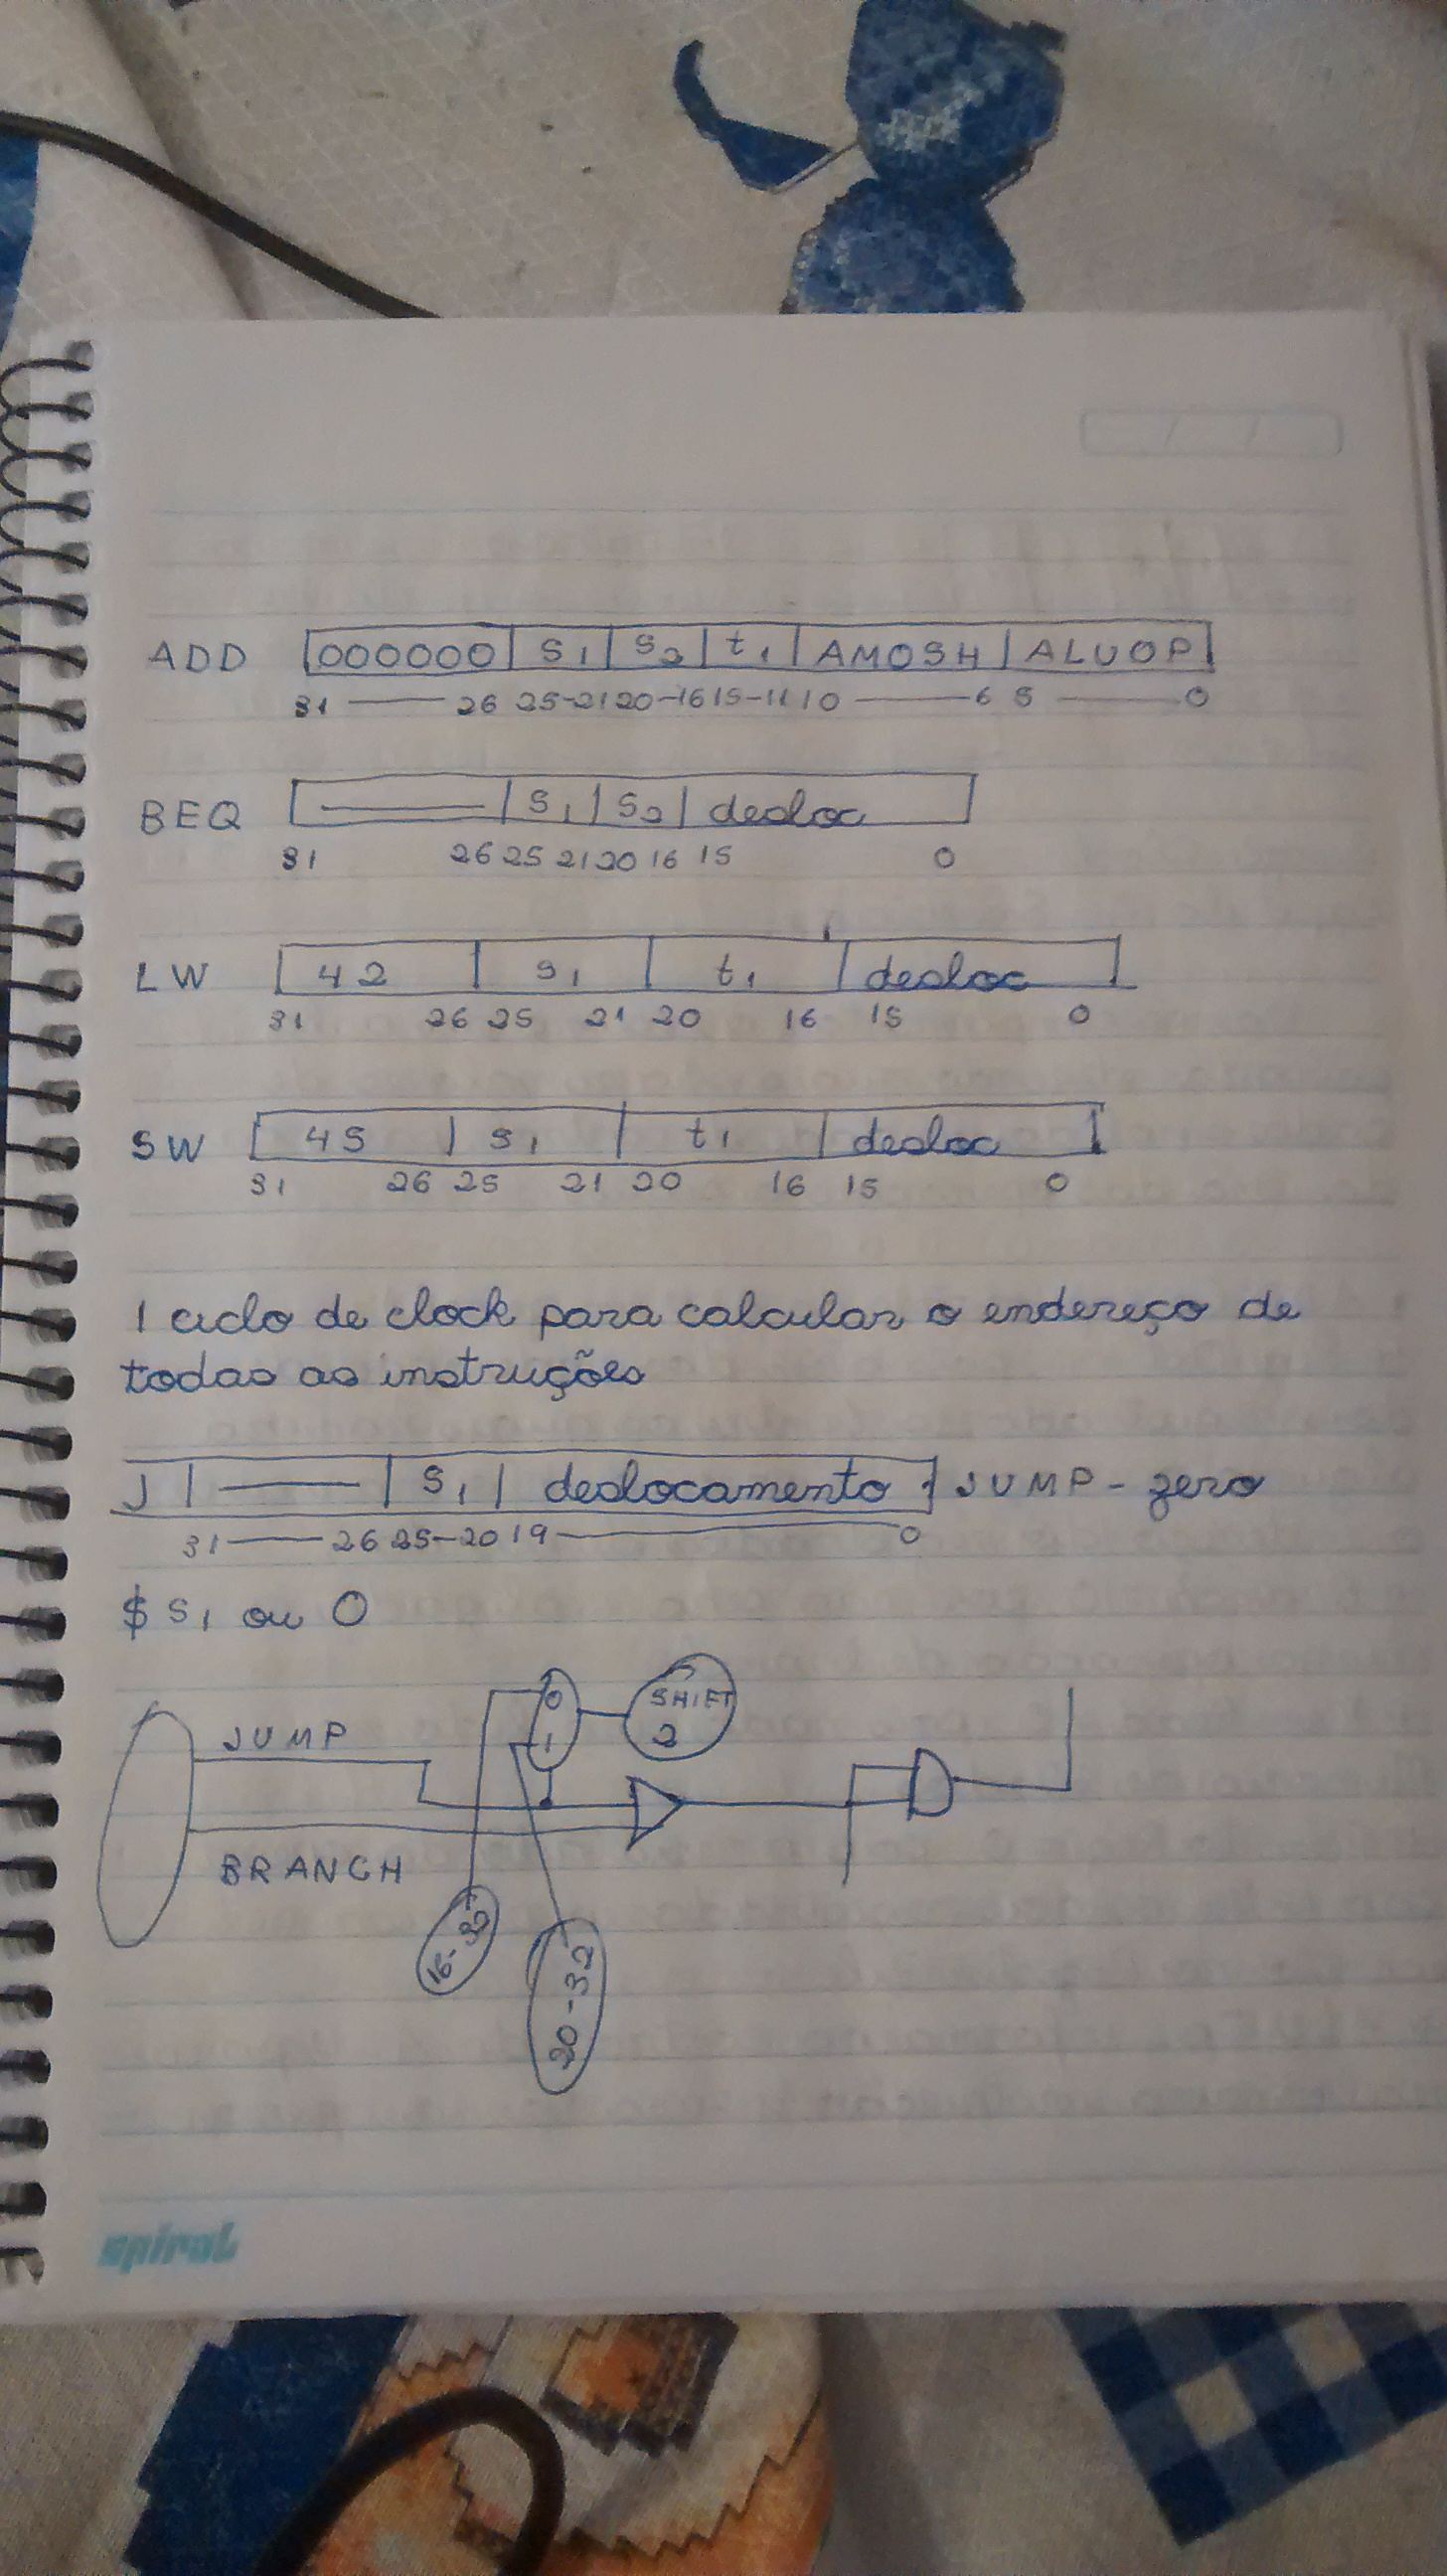 ADD 000000 S1 S2 t1 AMOSH ALUOP
31 — 26 25-21 20-16 15-11 10 — 6 5 — 0
BEQ — S1 S2 desloc
31 26 25 21 20 16 15 0
LW 42 S1 t1 desloc
31 26 25 21 20 16 15 0
SW 45 S1 t1 desloc
31 26 25 21 20 16 15 0
1 ciclo de clock para calcular o endereço de
todas as instruções
J — S1 deslocamento JUMP - zero
31 — 26 25-20 19 — 0
$ S1 ou 0
0
1
SHIFT
2
JUMP
BRANCH
16-32
20-32
spiral